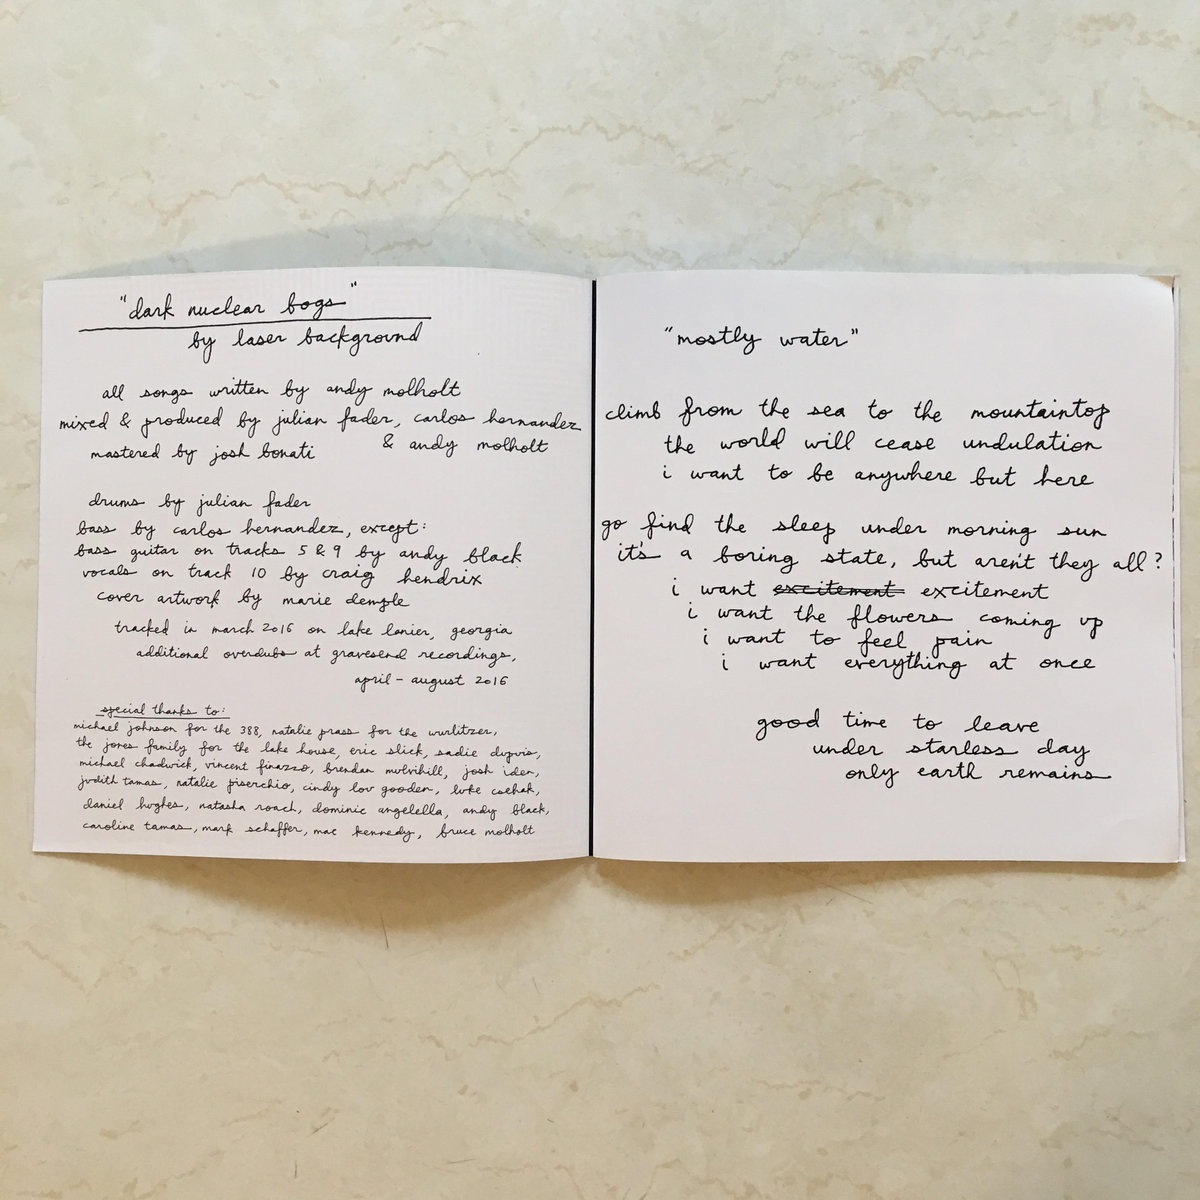 "dark nuclear bogs"
by laser background
all songs written by andy molholt
mixed & produced by julian fader, carlos hernandez
& andy molholt
mastered by josh bonati
drums by julian fader
bass by carlos hernandez, except:
bass guitar on tracks 5 & 9 by andy black
vocals on track 10 by craig hendrix
cover artwork by marie demple
tracked in march 2016 on lake lanier, georgia
additional overdubs at gravesend recordings,
april - august 2016
special thanks to:
michael johnson for the 388, natalie prass for the wurlitzer,
the jones family for the lake house, eric slick, sadie dupuis,
michael chadwick, vincent finazzo, brendan mulvihill, josh iden,
judith tamas, natalie piserchio, cindy lou gooden, luke csehak,
daniel hughes, natasha roach, dominic angelella, andy black,
caroline tamas, mark schaffer, mac kennedy, bruce molholt
"mostly water"
climb from the sea to the mountaintop
the world will cease undulation
i want to be anywhere but here
go find the sleep under morning sun
it's a boring state, but aren't they all?
i want excitement excitement
i want the flowers coming up
i want to feel pain
i want everything at once
good time to leave
under starless day
only earth remains